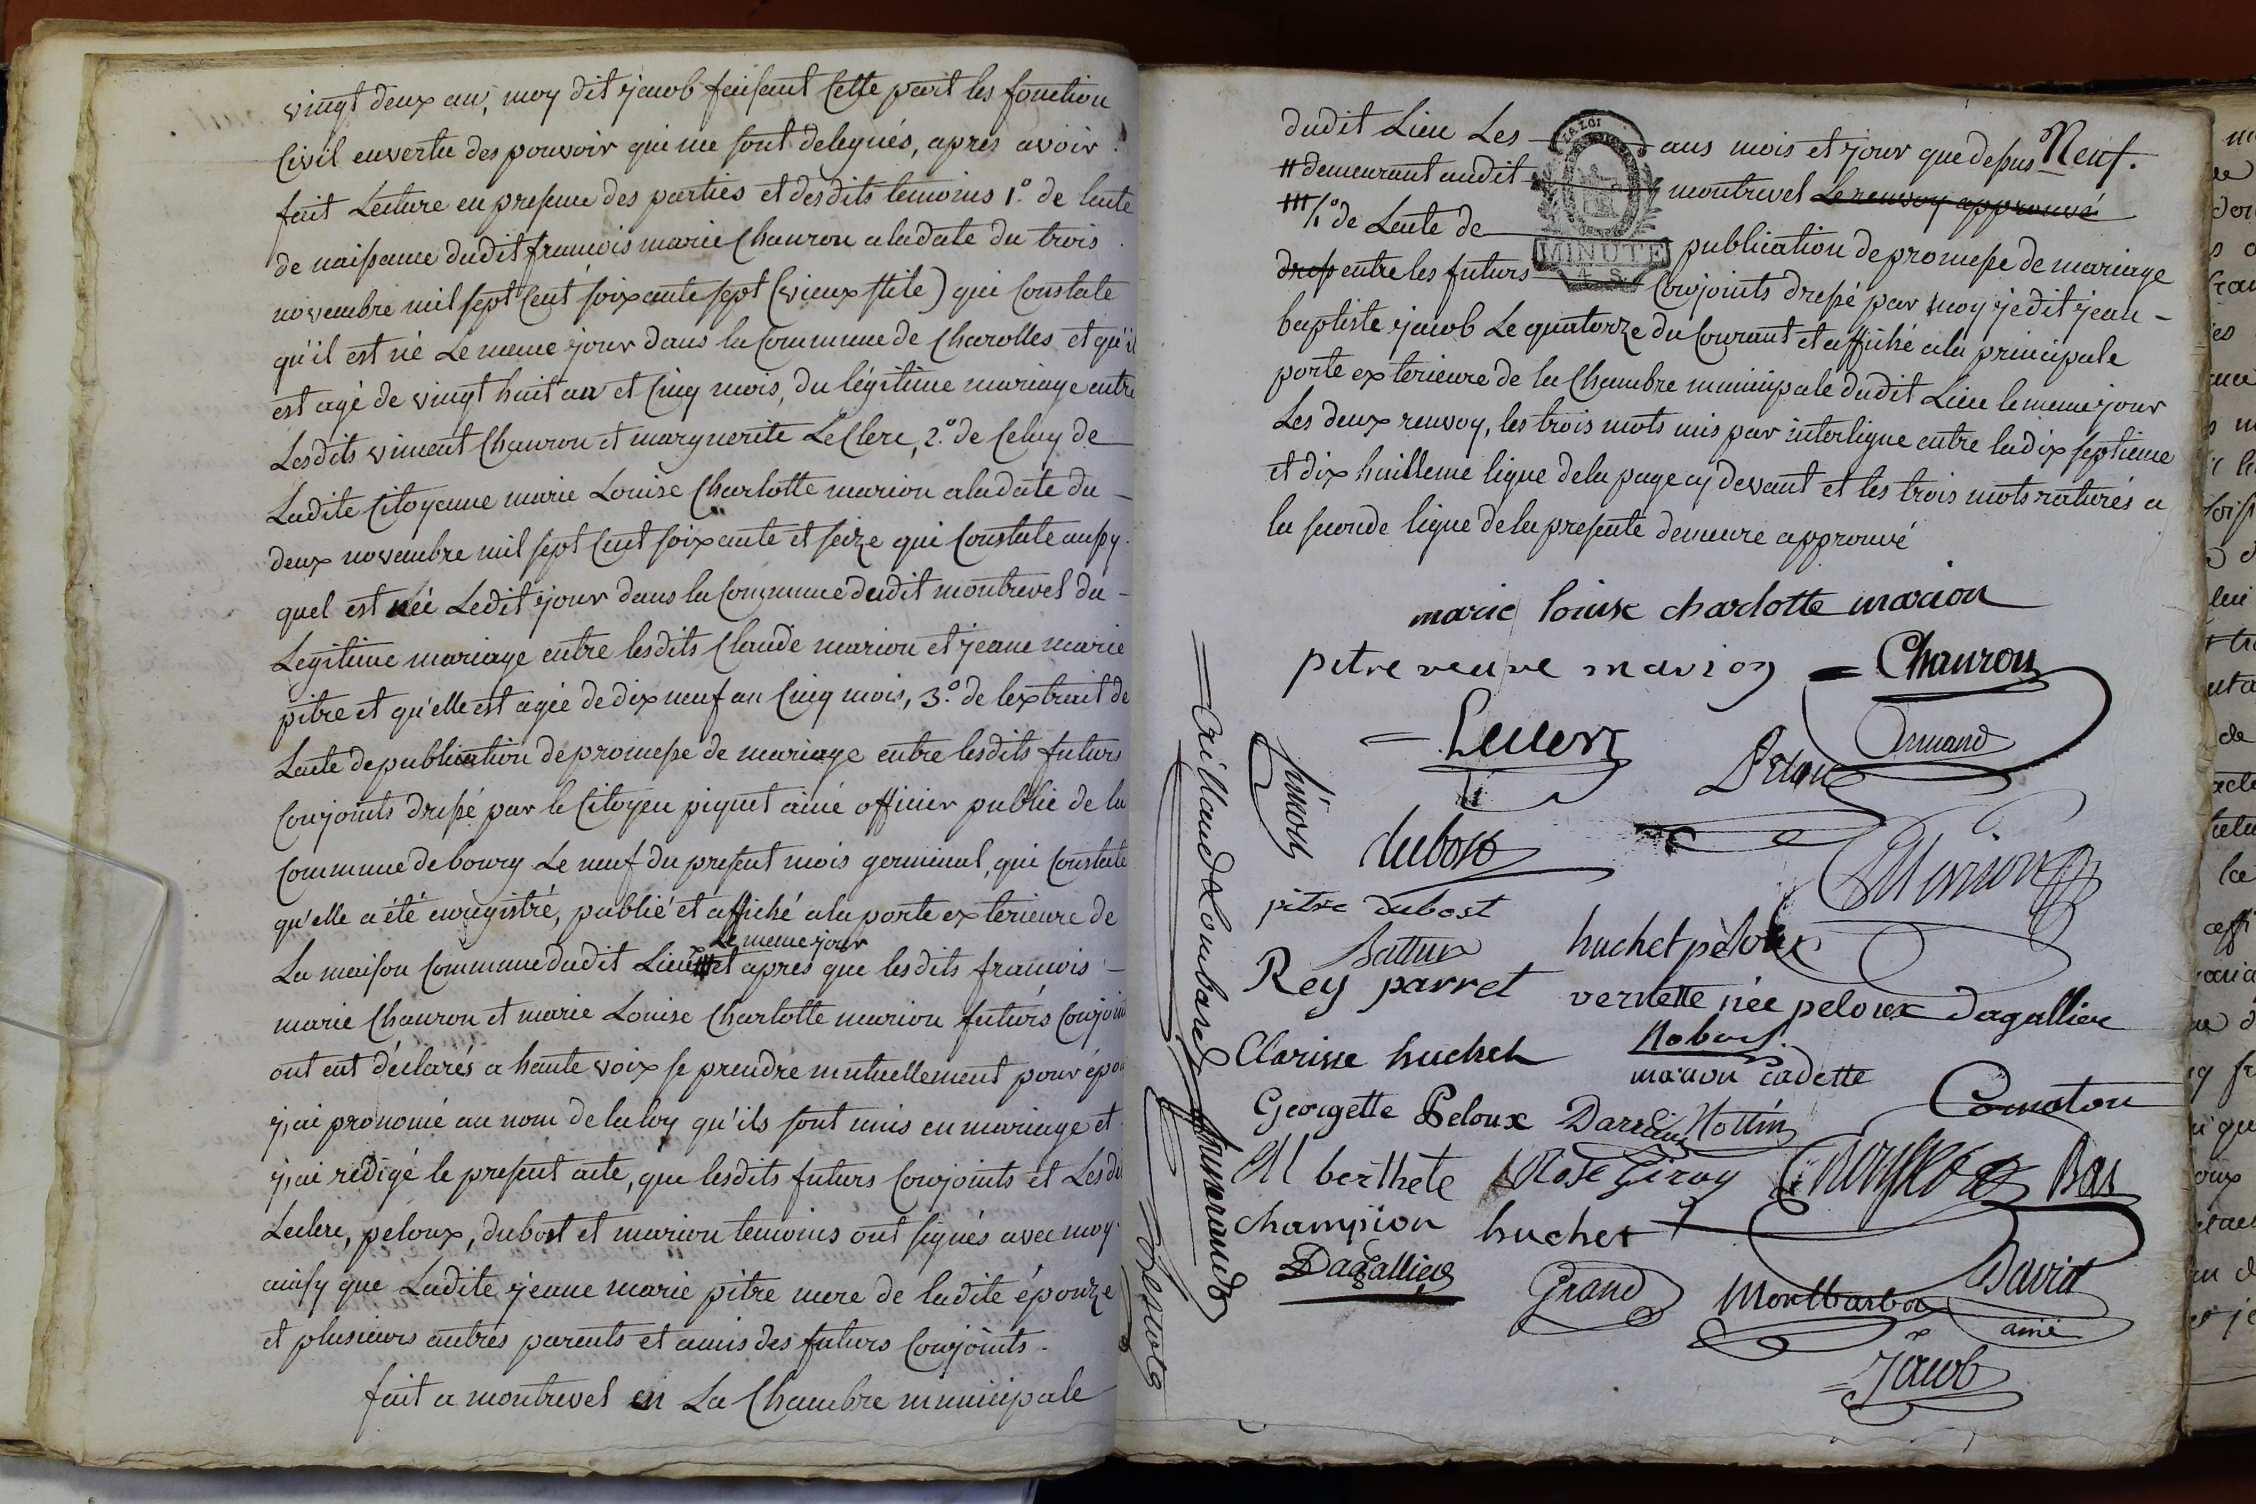 vingt deux an, moy dit jacob faisant Cette part les fonction
Civil envertu des pouvoir qui me sont delegués, apres avoir
fait Lecture en presence des parties et desdits temoins 1.° de lacte
de naissance dudit francois marie Chauron aladate du trois
novembre mil sept Cent soixante sept (vieux stile) qui Constate
qu'il est né Le meme jour dans la Commune de Charolles et qu'il
est agé de vingt huit an et Cinq mois, du légitime mariage entre
Lesdits vincent Chauron et marguerite LeClerc, 2.° de Celuy de
Ladite Citoyenne marie Louise Charlotte marion aladate du
deux novembre mil sept Cent soixante et seize qui Constate aussy
quel est née Ledit jour dans la Commune dudit montrevel du
Legitime mariage entre lesdits Claude marion et jeanne marie
pitre et qu'elle est agée de dix neuf an Cinq mois, 3.° de lextrait de
Lacte de publication de promesse de mariage entre lesdits futurs
Conjoints dressé par le Citoyen piquet ainé officier public de la
Commune de bourg Le neuf du present mois germinal, qui Constate
qu'elle a été enregistré, publié et affiché ala porte exterieure de
Le meme jour
La maison Commune dudit Lieu et apres que lesdits francois
marie Chauron et marie Louise Charlotte marion futurs Conjoints
ont eut déclarés a haute voix se prendre mutuellement pour épou
j,ai prononcé au nom de la loy qu'ils sont unis en mariage et
j,ai redigé le present acte, que lesdits futurs Conjoints et Lesdits
Leclerc, peloux, dubost et marion temoins ont signés avec moy
ainsy que Ladite jeanne marie pitre mere de ladite épouze
et plusieurs autres parents et amis des futurs Conjoints.
fait a montrevel en La Chambre municipale
Neuf.
dudit Lieu Les ans mois et jour que dessus
# demeurant audit montrevel Le renvoy approuvé
1° de Lacte de publication de promesse de mariage
dress entre les futurs Conjoints dressé par moy je dit jean
baptiste jacob Le quatorze du Courant et affiché ala principale
porte exterieure de la Chambre municipale dudit Lieu le meme jour
Les deux renvoy, les trois mots mis par interligne entre la dix septieme
et dix huitieme ligne de la page cy devant et les trois mots raturés a
la seconde ligne de la presente demeure approuvé
LA LOI
MINUTE
4 S.
marie louise charlotte marion
pitre veuve marion Chauron
Leclerc
Armand
Peloux
simon
dubost
Marion
pitre dubost
huchet pèloux
Rey parret
vernette née peloux dagallier
Clarisse huchet
marion cadette
Georgette Peloux
Comaton
M berthete Rose Giroy
Bas
champion huchet
Dagallier
Grand
Montbarbon
David
ainé
Jacob